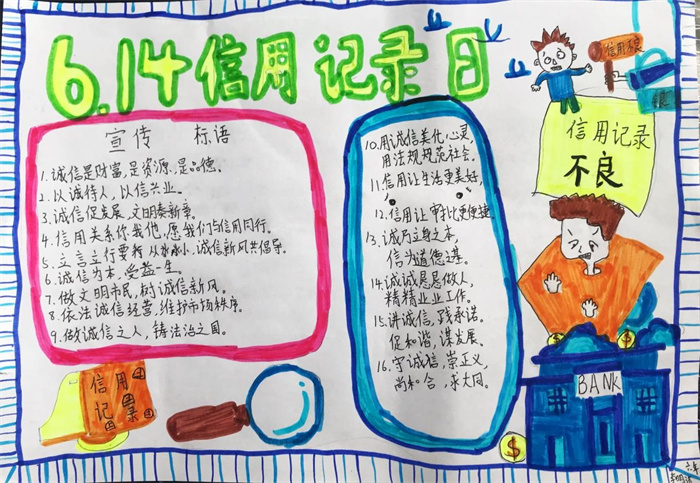 6.14信用记录日
宣传 标语
1.诚信是财富,是资源,是品德。
2.以诚待人,以信兴业。
3.诚信促发展,文明奏新章。
4.信用关系你我他,愿我们与信用同行。
5.立言立行要有从小,诚信新风共倡导。
6.诚信为本,受益一生。
7.做文明市民,树诚信新风。
8.依法诚信经营,维护市场秩序。
9.做诚信之人,铸法治之国。
10.用诚信美化心灵
用法规规范社会。
11.信用让生活更美好,
12.信用让审批更便捷
13.诚为立身之本,
信为道德之基。
14.诚诚恳恳做人,
精精业业工作。
15.讲诚信,践承诺。
促和谐,谋发展。
16.守诚信,崇正义,
尚和合,求大同。
信用不良
信用记录
不良
信用
记录
BANK
$